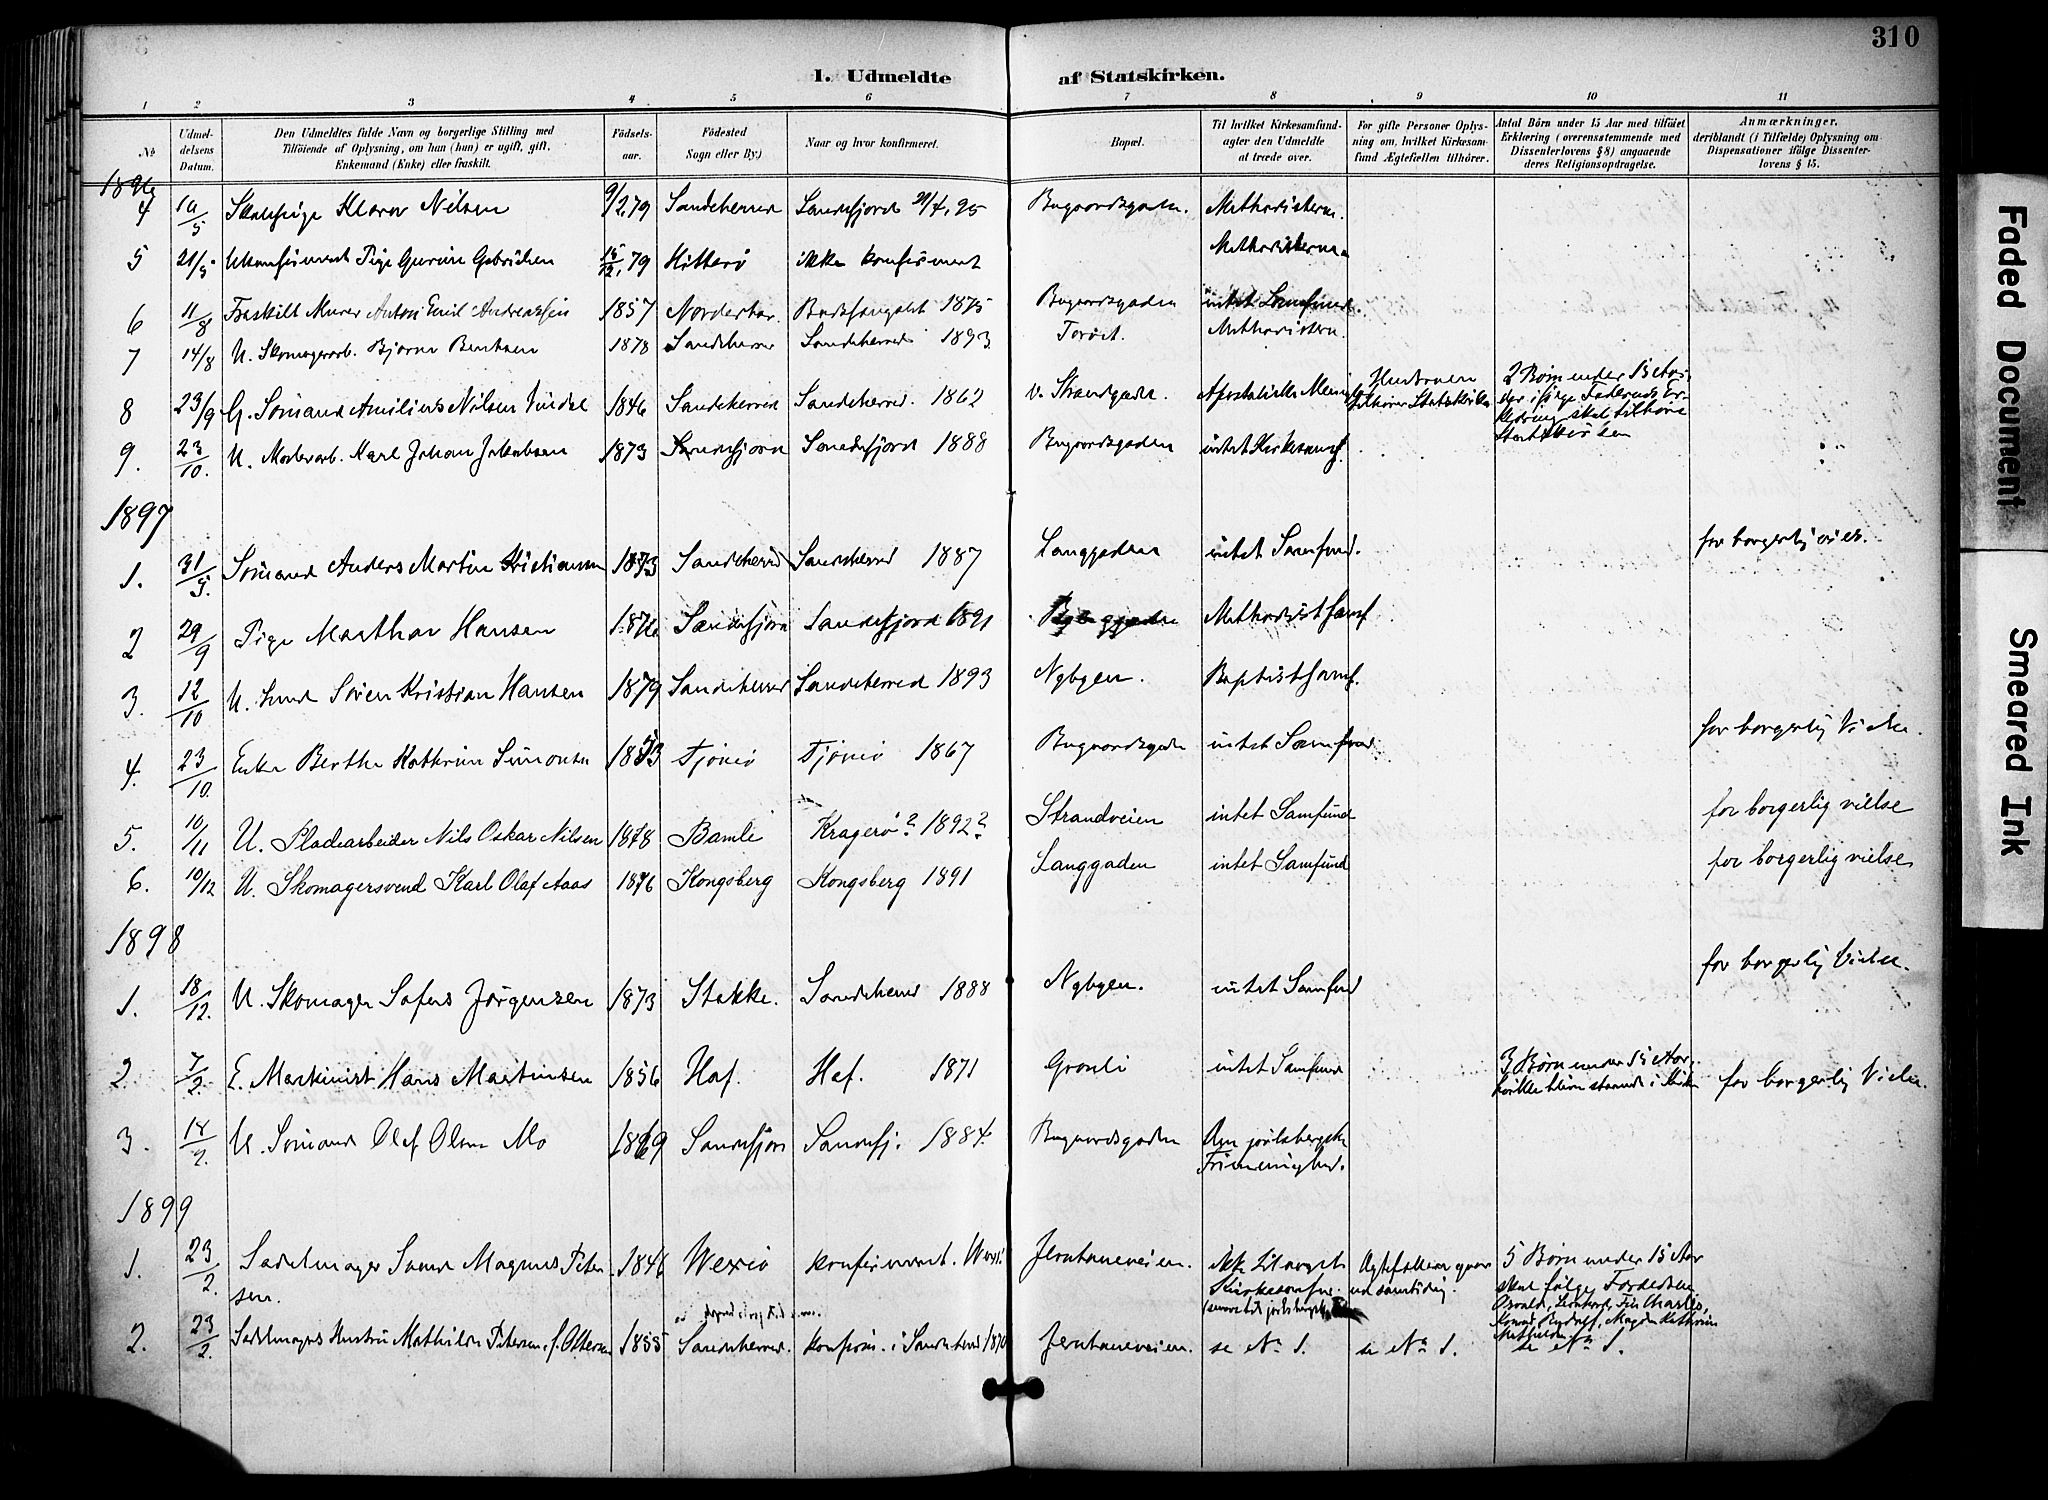 310
1. Udmeldte af Statskirken.
1 2 3 4 5 6 7 8 9 10 11
No
Udmeldelsens Datum.
Den Udmeldtes fulde Navn og borgerlige Stilling med
Tilföiende af Oplysning, om han (hun) er ugift, gift,
Enkemand (Enke) eller fraskilt.
Födsels-
aar.
Födested
Sogn eller By.)
Naar og hvor konfirmeret.
Bopæl.
Til hvilket Kirkesamfund
agter den Udmeldte
at træde over.
For gifte Personer Oplys-
ning om, hvilket Kirkesam-
fund Ægtefællen tilhörer.
Antal Börn under 15 Aar med tilföiet
Erklæring (overensstemmende med
Dissenterlovens §8) angaaende
deres Religionsopdragelse.
Anmærkninger,
deriblandt (i Tilfælde) Oplysning om
Dispensationer ifölge Dissenter-
lovens § 15.
1896
4 19/5 Klara Nilsen 9/2,79 Sandeherred Sandefjord 95 Bugaardsgaden. Methodisterne.
5 21/5 Ukonfirmeret Pige Gurine Gabrielsen 15/12,79 Hitterö ikke konfirmeret Methodisterne
6 11/8 Fraskilt Murer Anton Emil Andreassen 1857 Bodsfængslet 1875 Bugaardsgaden intet Samfund.
7 14/8 U. Skomagerarb. Bjarne Bentsen 1878 Sandeherred Sandeherred 1893 Torvet. Methodistern.
8 23/9 G. Sömand Amilius Nilsen Vindal 1846 Sandeherred Sandeherred. 1862 v. Strandgaden. Apostoliske Menigh. Hustruen tilhörer Statskirken 2 Börn under 15 Aar, der ifölge Faderens Erklæring skal tilhöre Statskirken
9. 23/10. U. Malerarb. Karl Johan Jakobsen 1873 Sandefjord Sandefjord 1888 Bugaardsgaden intet Kirkesamf.
1897
1. 31/5. Sömand Anders Martin Kristiansen 1873 Sandeherred Sandeherred 1887 Langgaden intet Samfund. for borgerlig vies.
2 29/9 Pige Marthar Hansen 1876 Sandefjord Sandefjord 1891 Methodistsamf
3. 12/10 U. Sören Kristian Hansen 1879 Sandeherred Sandeherred 1893 Nybyen. Baptistsamf.
4. 23/10. Enke Berthe Kathrine Simonsen 1853 Tjömö Tjömö 1867 Bugaardsgade intet Samfund for borgerlig Vielse.
5. 10/11 U. Pladearbeider Nils Oskar Nilsen 1878 Bamle Kragerö? 1892? Strandveien intet Samfund for borgerlig vielse
6. 10/12 U. Skomagersvend Karl Olaf Aaas 1876 Kongsberg Kongsberg 1891 Langgaden intet Samfund for borgerlig vielse
1898
1. 18/12. U. Skomager Sofus Jörgensen 1873 Stokke. Sandeherred 1888 Nybyen. intet Samfund for borgerlig Vielse.
2. 7/2. E. Maskinist Hans Martinsen 1856 Hof. Hof. 1871 Granli intet Samfund 3 Börn under 15 Aar, hvilke blive staaende i Kirken for borgerlig Vielse.
3. 18/2. U. Sömand Olaf Olsen Mo 1869 Sandefjord Sandefj. 1884. Bugaardsgaden Den jarlsbergske Frimenighed.
1899
1. 23/2 Sadelmager Magnus Peter- 1846 Wexiö konfirmeret. Wexiö Jernbaneveien. ikke tilhörer Kirkesamfund Ægtefællen ud samtidig. 5 Börn under 15 Aar
sen. skal fölge Forældrene Osvald, Leonhard, Charles, Konrad, Rudolf, Magda Kathrine Mathilde
2. 23/2. Sadelmagers Hustru Mathilde Petersen, f. Olsen 1855 Sandeherred. konfirm. i Sandeherred 1870 Jernbaneveien. se No 1. se No 1. se No 1.
Faded Document
Smeared Ink